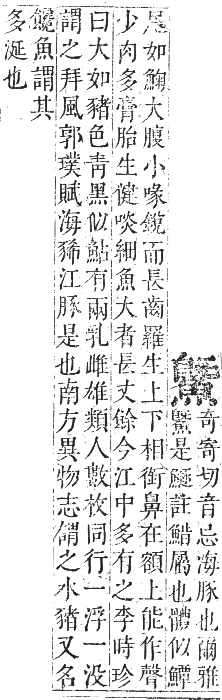 鱀
奇寄切音忌海豚也爾雅
鱀是鱁註䱜屬也體似鱏
尾如䱡大腹小喙銳而長齒羅生上下相銜鼻在額上能作聲
少肉多膏胎生健啖細魚大者長丈餘今江中多有之李時珍
曰大如豬色青黑似鮎有兩乳雌雄類人數枚同行一浮一没
謂之拜風郭璞賦海狶江豚是也南方異物志謂之水豬又名
饞魚謂其
多涎也